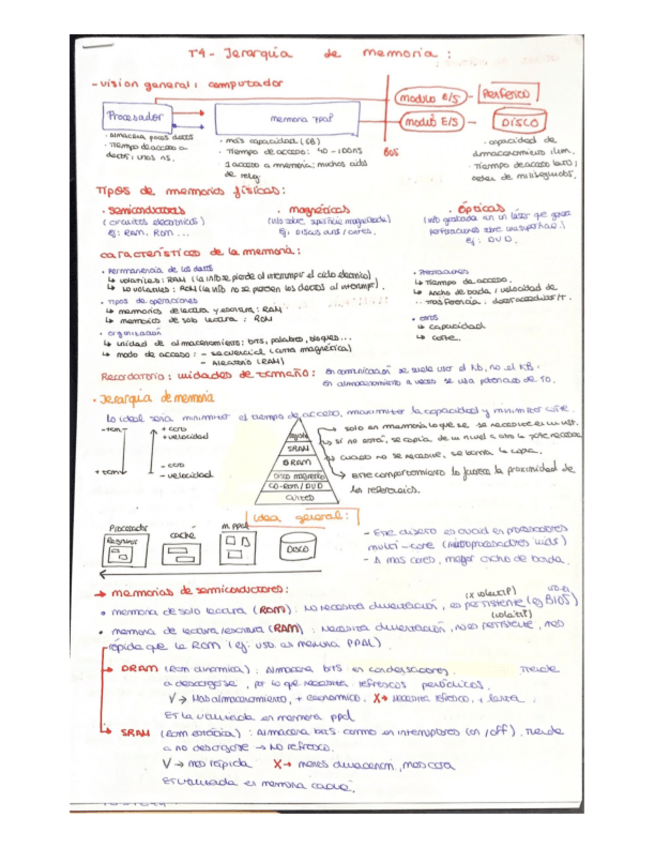 T4 - Jerarquia de memoria :
- vision general : computador
Procesador
memoria ppal
modulo E/S
Periferico
modulo E/S
DISCO
BUS
· almacena pocos datos
· Tiempo de acceso a
datos : unos ns.
· más capacidad (GB)
· Tiempo de acceso : 40 - 100ns
· 1 acceso a memoria : muchos ciclos
de reloj
· capacidad de
almacenamiento
· Tiempo de acceso
orden de milisegundos.
Tipos de memorias físicas :
· semiconductores
(circuitos electronicos)
ej : RAM, ROM ...
· magnéticas
(info sobre superficie magnetizada)
Ej : Discos duros / cintas.
· Ópticas
(info grabada en un láser que genera
perforaciones sobre una superficie)
ej : DVD.
características de la memoria :
· Permanencia de los datos
↳ volatiles : RAM (la info se pierde al interrumpir el electrico)
↳ no volatiles : ROM (la info no se pierden los datos al interrumpir).
· Tipos de operaciones
↳ memorias de lectura y escritura : RAM
↳ memorias de solo lectura : ROM
· organización
↳ unidad de almacenamiento : bits, palabras, bloques ...
↳ modo de acceso : - secuencial (cinta magnética)
- Aleatorio (RAM)
· Prestaciones
↳ Tiempo de acceso.
↳ Ancho de banda / velocidad de
transferencia :
· otros
↳ capacidad
↳ coste.
Recordatorio : unidades de tamaño : en comunicación se suele usar el kb, no el KB.
en almacenamiento a veces se usa potencias de 10.
· Jerarquia de memoria
Lo ideal seria minimizar el tiempo de acceso, maximizar la capacidad y minimizar coste.
- tam
+ tam
+ caro
+ velocidad
- caro
- velocidad
SRAM
DRAM
Disco magnetico
CD-Rom / DVD
cintas
→ solo en memoria lo que se necesite en un inst.
→ si no está, se copia de un nivel a otro la parte necesaria
→ cuando no se necesite, se borra la copia.
→ este comportamiento lo favorece la proximidad de
las referencias.
idea general :
Procesador
Registros
caché
m. ppal
DISCO
- Este diseño es crucial en procesadores
multi-core (microprocesadores)
- A mas cores, mayor ancho de banda.
→ memorias de semiconductores :
· memoria de solo lectura (ROM) : No necesita alimentación, es persistente (ej BIOS)
· memoria de lectura/escritura (RAM) : Necesita alimentación, no es persistente, mas
rápida que la ROM (ej : uso en memoria PPAL).
→ DRAM (Ram dinamica) : Almacena bits en condensadores. Tiende
a descargarse, por lo que necesita refrescos periódicos.
V → Mas almacenamiento, + economico. X → necesita refresco, + lenta.
Es la utilizada en memoria ppal
→ SRAM (Ram estática) : Almacena bits como en interruptores (on / off). Tiende
a no descargarse → No refresco.
V → mas rápida X → menos almacenam., mas cara
Es utilizada en memoria caché.